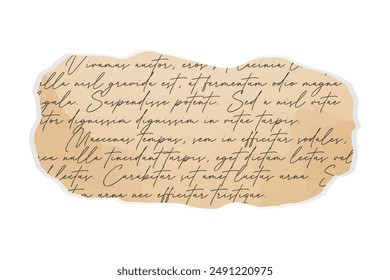 Vivamus auctor, eros
lla nisl gravida est, ut fermentum odio magna
gula. Suspendisse potenti. Sed a nisl vitae
tor dignissim dignissim in vitae turpis.
Maecenas tempus, sem in efficitur sodales,
ca nulla tincidunt turpis, eget dictum lectus vel
lectus. Curabitur sit amet luctus urna. S
m urna nec efficitur tristique.
shutterstock
IMAGE ID: 2491220975
www.shutterstock.com